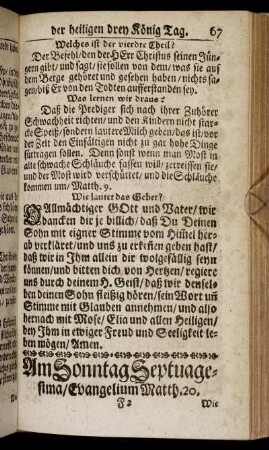 der heiligen drey König Tag. 67
Welches ist der vierdte Theil?
Der Befehl/den der HErr Christus seinen Jün-
gern gibt/und sagt/sie sollen von dem/was sie auf
dem Berge gehöret und gesehen haben/nichts sa-
gen/biß Er von den Todten aufferstanden sey.
Was lernen wir draus?
Daß die Prediger sich nach ihrer Zuhörer
Schwachheit richten/und den Kindern nicht star-
cke Speiß/sondern lautere Milch geben/das ist/vor
der Zeit den Einfältigen nicht zu gar hohe Dinge
fürtragen sollen. Denn sonst wenn man Most in
alte schwache Schläuche fassen will/zerreissen sie/
und der Most wird verschüttet/und die Schläuche
kommen um/Matth. 9.
Wie lautet das Gebet?
O Allmächtiger GOtt und Vater/wir
dancken dir je billich/daß Du Deinen
Sohn mit eigner Stimme vom Hiṁel her-
ab verkläret/und uns zu erkeñen geben hast/
daß wir in Ihm allein dir wolgefällig seyn
können/und bitten dich von Hertzen/regiere
uns durch deinem H. Geist/daß wir densel-
ben deinen Sohn fleißig hören/sein Wort uñ
Stimme mit Glauben annehmen/und also
hernach mit Mose/Elia und allen Heiligen/
bey Ihm in ewiger Freud und Seeligkeit le-
ben mögen/Amen.
Am Sonntag Septuage-
sima/Evangelium Matth. 20.
F 2 Wie